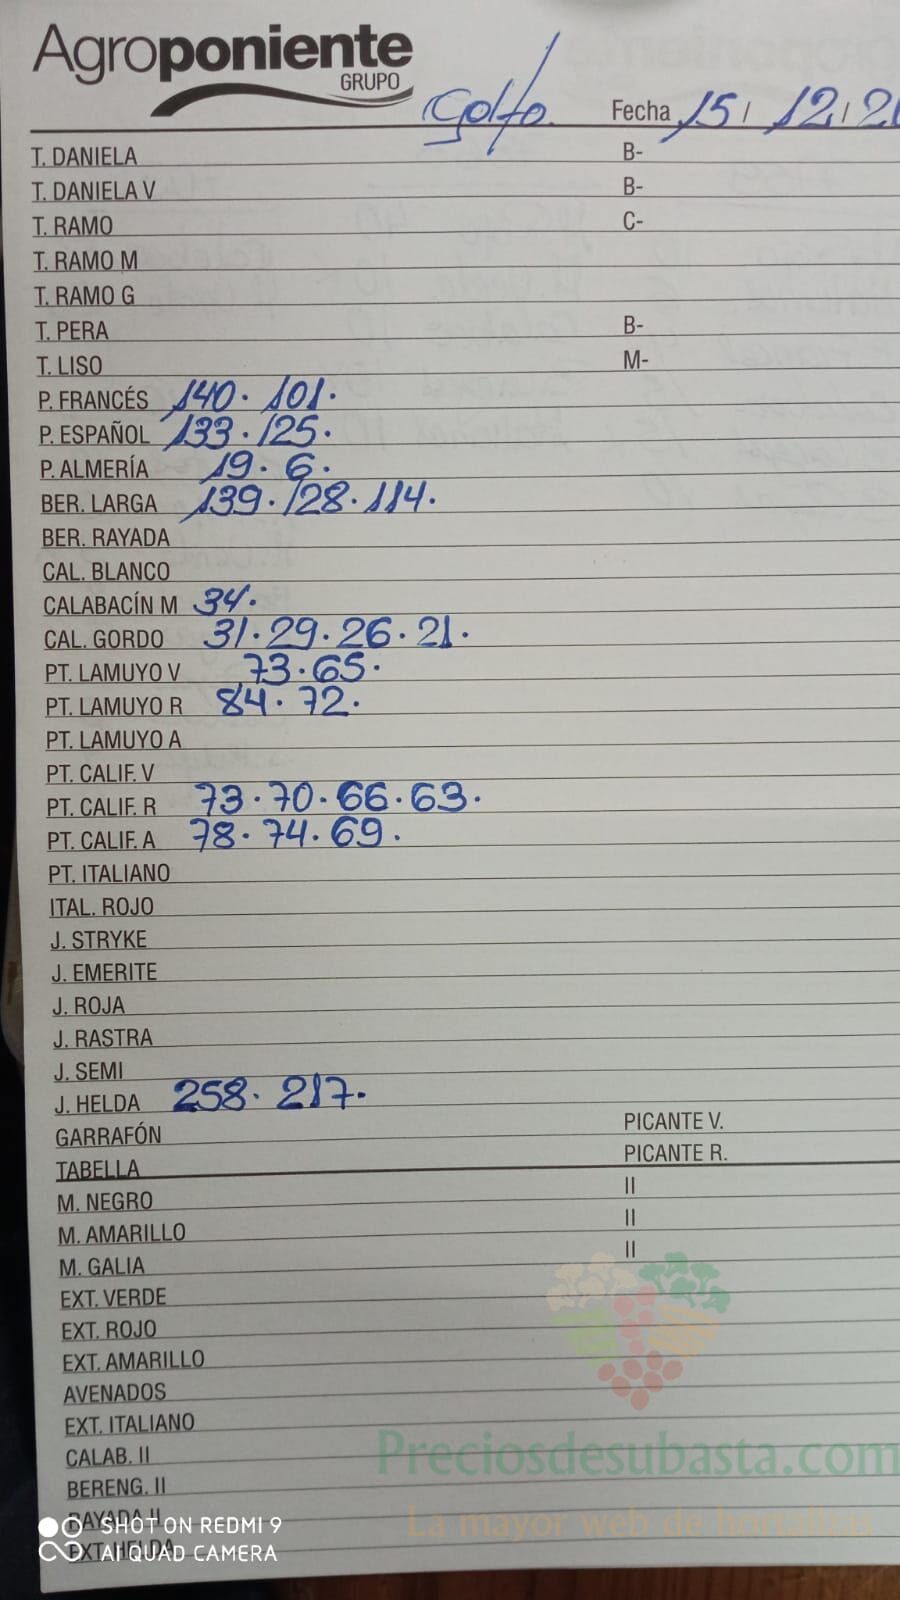 Agroponiente
GRUPO
Golfo. Fecha 15 / 12 / 20
T. DANIELA B-
T. DANIELA V B-
T. RAMO C-
T. RAMO M
T. RAMO G
T. PERA B-
T. LISO M-
P. FRANCÉS 140. 101.
P. ESPAÑOL 133. 125.
P. ALMERÍA 19. 6.
BER. LARGA 139. 128. 114.
BER. RAYADA
CAL. BLANCO
CALABACÍN M 34.
CAL. GORDO 31. 29. 26. 21.
PT. LAMUYO V 73. 65.
PT. LAMUYO R 84. 72.
PT. LAMUYO A
PT. CALIF. V
PT. CALIF. R 73. 70. 66. 63.
PT. CALIF. A 78. 74. 69.
PT. ITALIANO
ITAL. ROJO
J. STRYKE
J. EMERITE
J. ROJA
J. RASTRA
J. SEMI
J. HELDA 258. 217.
GARRAFÓN PICANTE V.
TABELLA PICANTE R.
M. NEGRO II
M. AMARILLO II
M. GALIA II
EXT. VERDE
EXT. ROJO
EXT. AMARILLO
AVENADOS
EXT. ITALIANO
CALAB. II
BERENG. II
RAYADA II
EXT. HELDA
Preciosdesubasta.com
La mayor web de hortalizas
SHOT ON REDMI 9
AI QUAD CAMERA